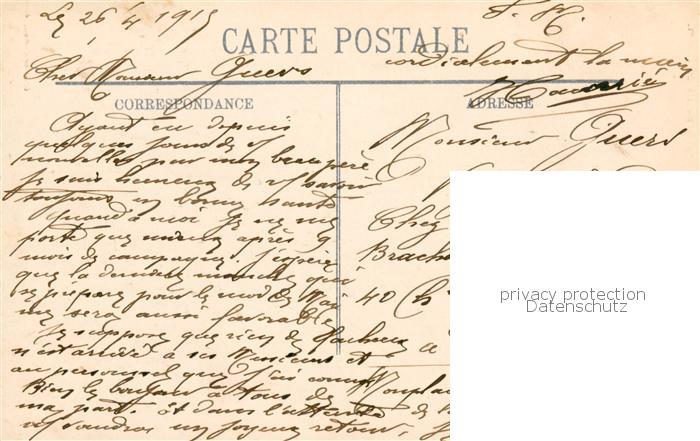 Le 26/4 1915
F. M.
CARTE POSTALE
cordialement la main
Cher Monsieur Guers
CORRESPONDANCE
ADRESSE
Ayant eu depuis
quelques jours des
nouvelles par mon beau père
je suis heureux de savoir
toujours en bonne santé
Quand à moi je ne me
porte que mieux après 9
mois de campagne. J'espère
que la dernière manche qui
se prépare pour le mois de Mai
me sera aussi favorable
Je suppose que rien de fâcheux
n'est arrivé à ces Messieurs et
au personnel que j'ai connu
Bien le bonjour à tous de
ma part. Et dans l'attente
un joyeux retour,
Monsieur Guers
Chez
Brach
40 Ch
à
Monpla
privacy protection
Datenschutz